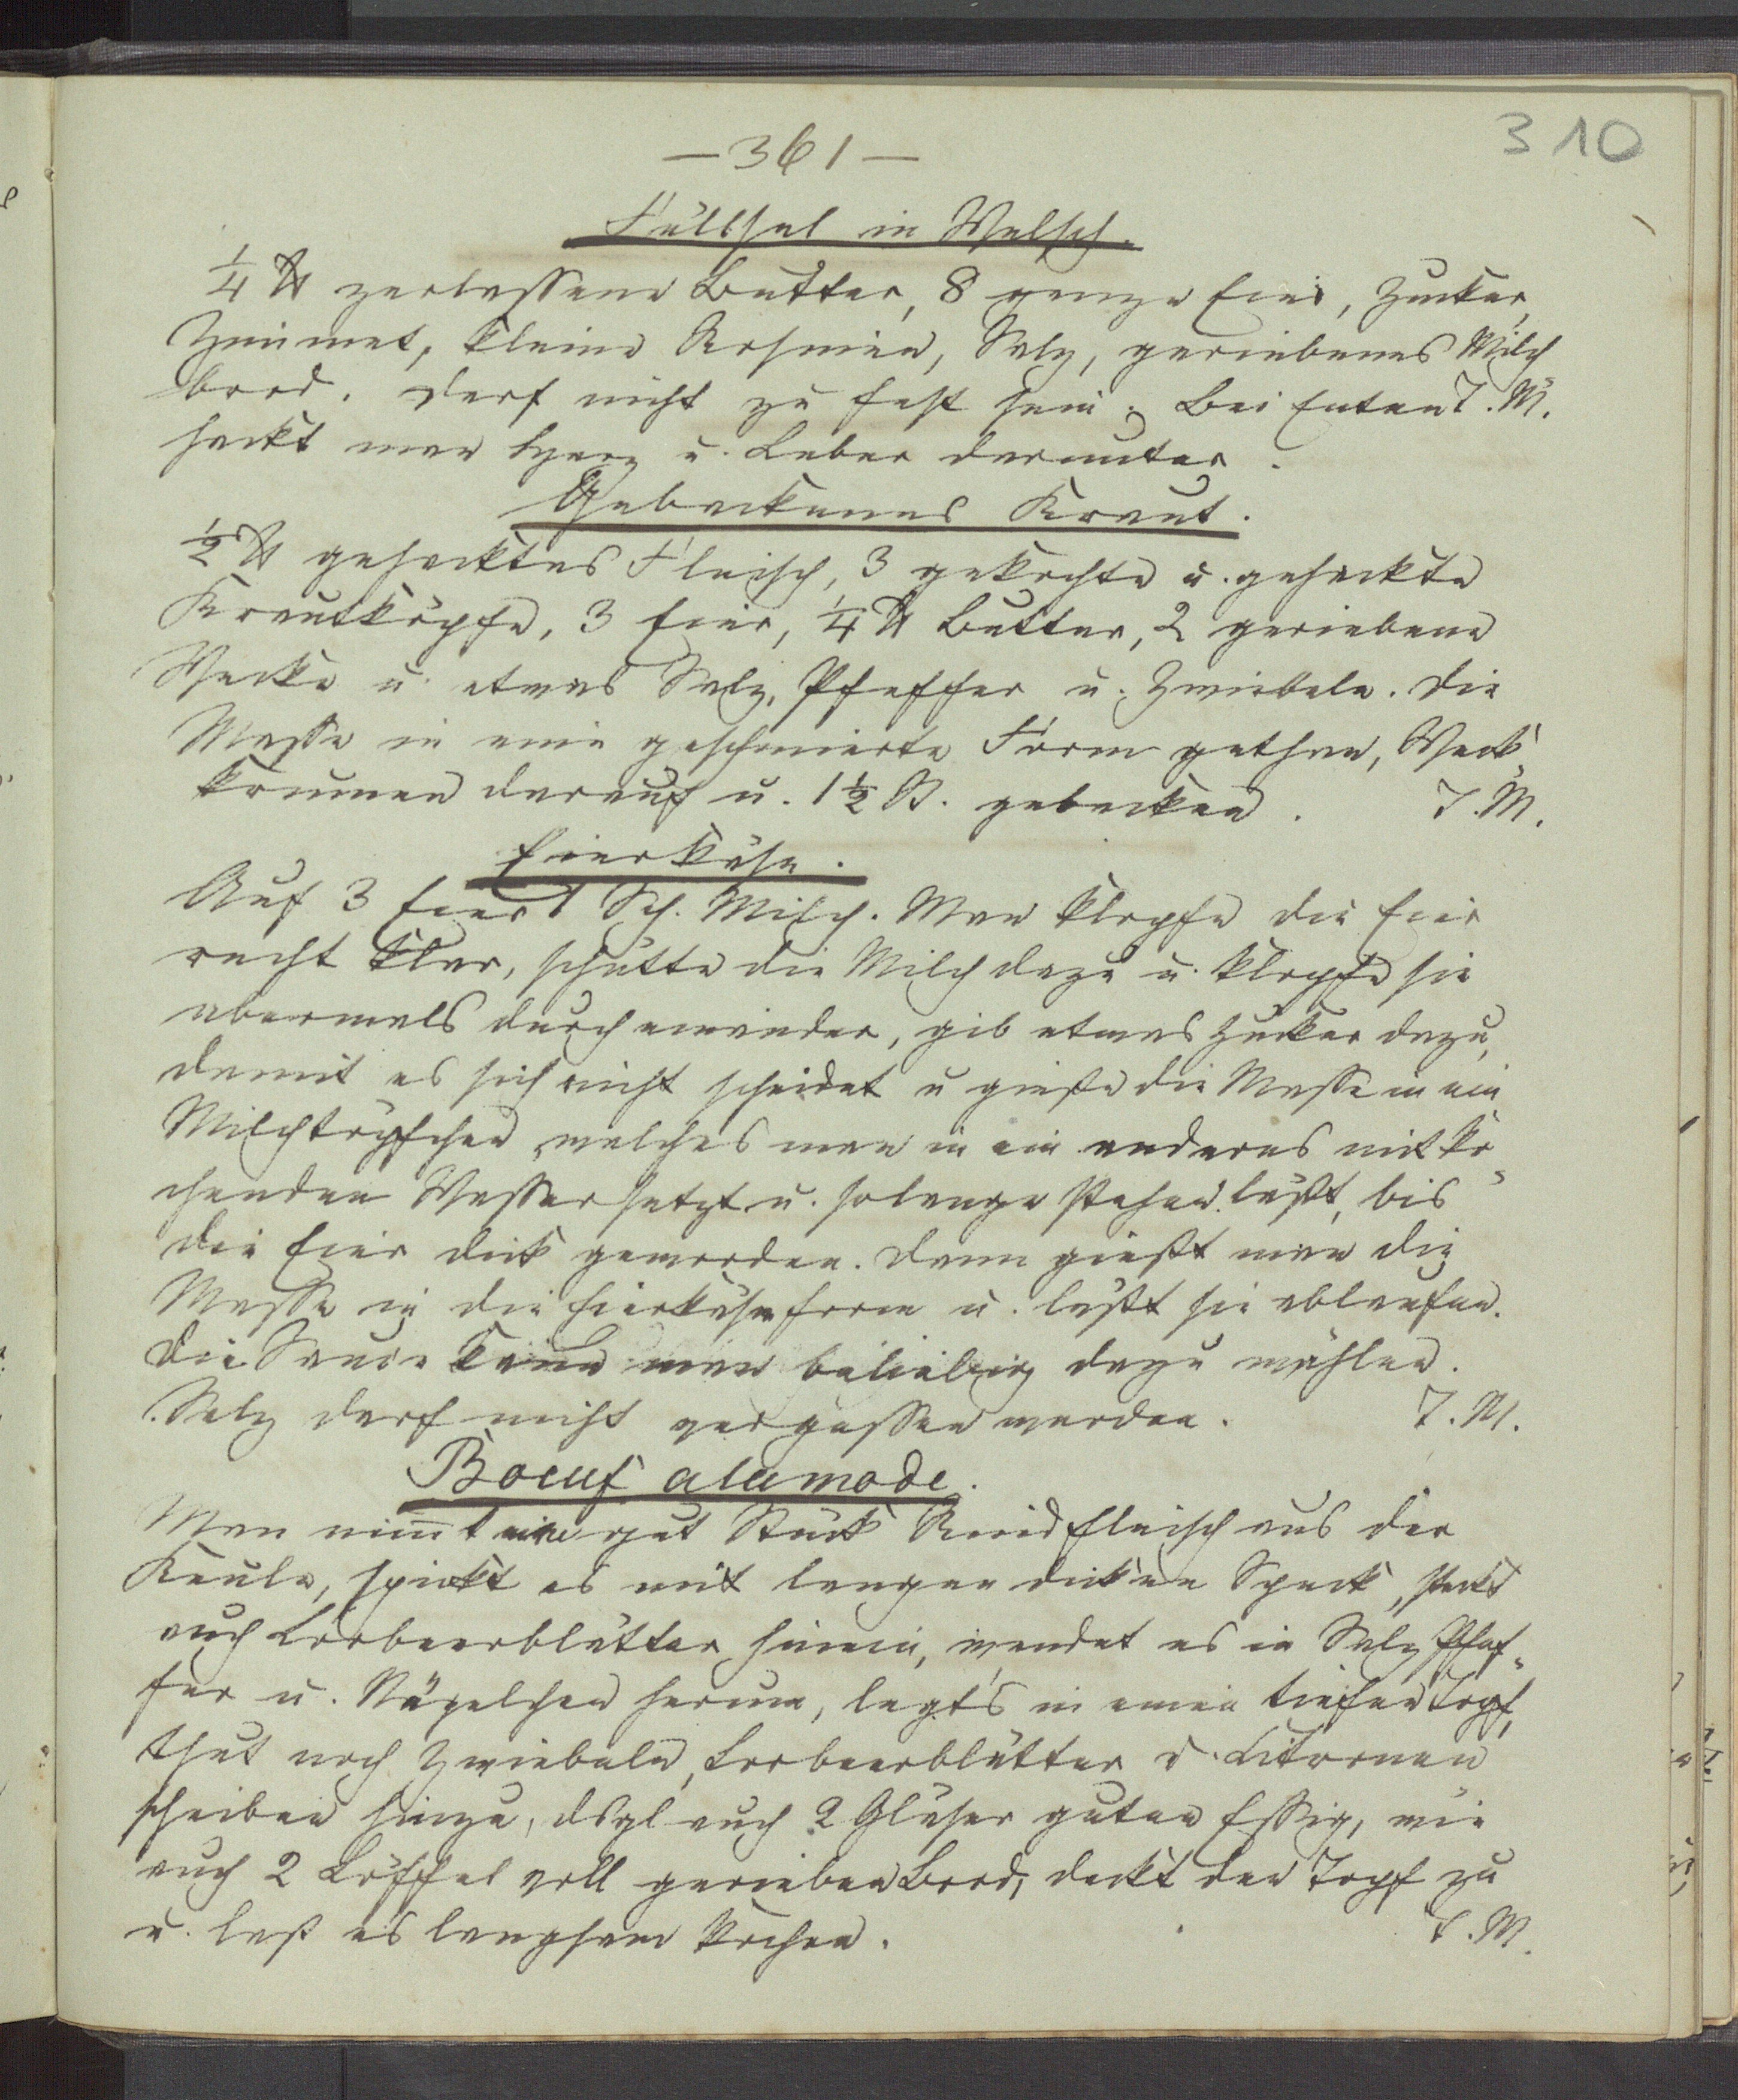 310
— 361 —
Füllsel in Welsch.
¼ ℔ zerlassene Butter, 8 ganze Eier, Zucker,
Zimmet, kleine Rosinen, Salz, geriebenes Milch
brod. Darf nicht zu fest sein. Bei Enten T. M.
hackt man Herz u. Leber darunter.
Gebackenes Kraut.
½ ℔ gehacktes Fleisch, 3 gekochte u. gehackte
Krautköpfe, 3 Eier, ¼ ℔ Butter, 2 geriebene
Wecke u. etwas Salz, Pfeffer u. Zwiebeln. Die
Masse in eine geschmierte Form gethan, Weck-
krumen darauf u. 1½ St. gebacken. T. M.
Eierkäse.
Auf 3 Eier 1 Sch. Milch. Man klopfe die Eier
recht klar, schütte die Milch dazu u. klopfe sie
abermals durcheinander, gib etwas Zucker dazu,
damit es sich nicht scheidet u gieße die Masse in ein
Milchtöpfchen welches man in ein anderes mit ko-
chenden Wasser setzt u. solange stehen läßt, bis
die Eier dick geworden. Dann gießt man die
Masse in die Eierkäseform u. läßt sie ablaufen.
Die Sauce kann man beliebig dazu wählen.
Salz darf nicht vergessen werden. T. M.
Boeuf alamode.
Man nimt ein gut Stück Rindfleisch aus der
Keule, spickt es mit langen dicken Speck, steckt
auch Lorbeerblätter hinein, wendet es in Salz Pfef-
fer u. Nägelchen herum, legt's in einen tiefen Topf,
thut noch Zwiebeln, Lorbeerblätter u. Citronen
scheiben hinzu, dsgl auch 2 Gläser guten Essig, wie
auch 2 Löffel voll gerieben Brod, deckt den Topf zu
u. laß es langsam kochen. T. M.